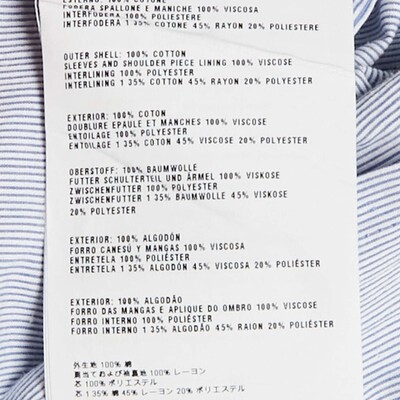 ESTERNO: 100% COTONE
FODERA SPALLONE E MANICHE 100% VISCOSA
INTERFODERA 100% POLIESTERE
INTERFODERA 1 35% COTONE 45% RAYON 20% POLIESTERE
OUTER SHELL: 100% COTTON
SLEEVES AND SHOULDER PIECE LINING 100% VISCOSE
INTERLINING 100% POLYESTER
INTERLINING 1 35% COTTON 45% RAYON 20% POLYESTER
EXTERIEUR: 100% COTON
DOUBLURE EPAULE ET MANCHES 100% VISCOSE
ENTOILAGE 100% POLYESTER
ENTOILAGE 1 35% COTON 45% VISCOSE 20% POLYESTER
OBERSTOFF: 100% BAUMWOLLE
FUTTER SCHULTERTEIL UND ÄRMEL 100% VISKOSE
ZWISCHENFUTTER 100% POLYESTER
ZWISCHENFUTTER 1 35% BAUMWOLLE 45% VISKOSE
20% POLYESTER
EXTERIOR: 100% ALGODÓN
FORRO CANESÚ Y MANGAS 100% VISCOSA
ENTRETELA 100% POLIÉSTER
ENTRETELA 1 35% ALGODÓN 45% VISCOSA 20% POLIÉSTER
EXTERIOR: 100% ALGODÃO
FORRO DAS MANGAS E APLIQUE DO OMBRO 100% VISCOSE
FORRO INTERNO 100% POLIÉSTER
FORRO INTERNO 1 35% ALGODÃO 45% RAION 20% POLIÉSTER
外生地 100% 綿
肩当ておよび袖裏地 100% レーヨン
芯 100% ポリエステル
芯 1 35% 綿 45% レーヨン 20% ポリエステル